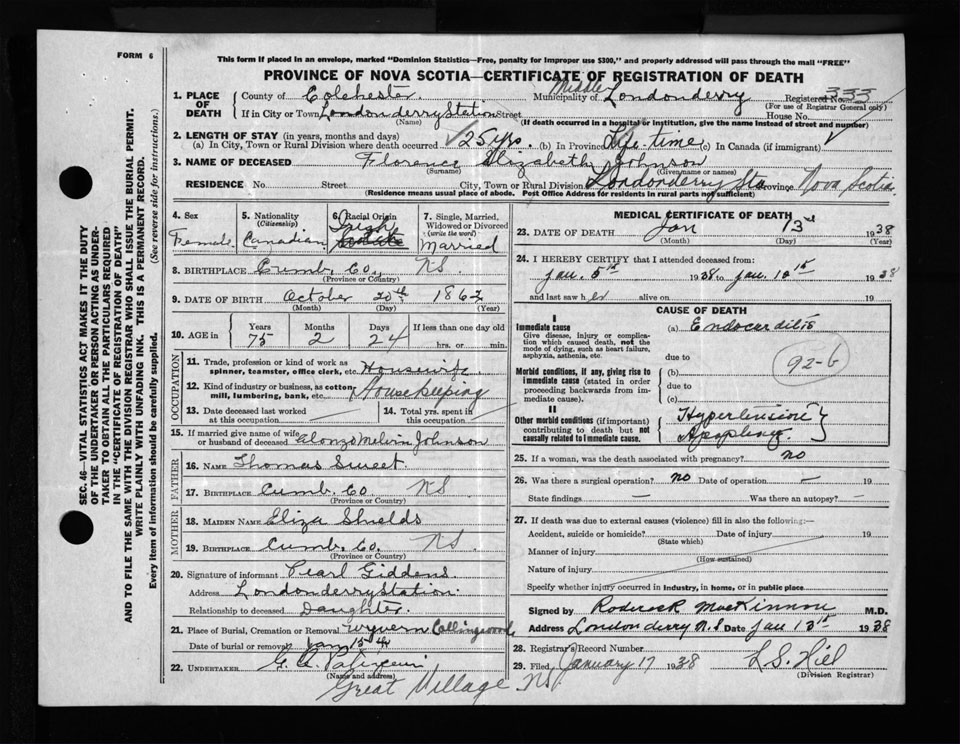 FORM 6
This form if placed in an envelope, marked "Dominion Statistics—Free, penalty for improper use $300," and properly addressed will pass through the mail "FREE"
PROVINCE OF NOVA SCOTIA—CERTIFICATE OF REGISTRATION OF DEATH
1. PLACE OF DEATH
County of Colchester. Municipality of Middle Londonderry Registered No. 333
(For use of Registrar General only)
If in City or Town Londonderry Station Street House No.
(Name) (If death occurred in a hospital or institution, give the name instead of street and number)
2. LENGTH OF STAY (in years, months and days)
(a) In City, Town or Rural Division where death occurred 25 yrs. (b) In Province Life-time (c) In Canada (if immigrant)
3. NAME OF DECEASED Florence Elizabeth Johnson
(Surname) (Given name or names)
RESIDENCE No. Street City, Town or Rural Division Londonderry Sta Province Nova Scotia
(Residence means usual place of abode. Post Office Address for residents in rural parts not sufficient)
4. Sex Female
5. Nationality (Citizenship) Canadian
6. Racial Origin Irish
7. Single, Married, Widowed or Divorced (write the word) Married
8. BIRTHPLACE Cumb. Co, NS
(Province or Country)
9. DATE OF BIRTH October 20th 1862
(Month) (Day) (Year)
10. AGE in Years 75 Months 2 Days 24 If less than one day old hrs. or min.
OCCUPATION
11. Trade, profession or kind of work as spinner, teamster, office clerk, etc. Housewife
12. Kind of industry or business, as cotton mill, lumbering, bank, etc. Housekeeping
13. Date deceased last worked at this occupation
14. Total yrs. spent in this occupation
15. If married give name of wife or husband of deceased Alonzo Melvin Johnson
FATHER
16. NAME Thomas Sweet.
17. BIRTHPLACE Cumb. Co NS
(Province or Country)
MOTHER
18. MAIDEN NAME Eliza Shields
19. BIRTHPLACE Cumb. Co. NS
(Province or Country)
20. Signature of informant Pearl Giddens.
Address Londonderry Station.
Relationship to deceased Daughter.
21. Place of Burial, Cremation or Removal Wyvern Collingwood
Date of burial or removal Jan 15th
22. UNDERTAKER
(Name and address)
Great Village NS
MEDICAL CERTIFICATE OF DEATH
23. DATE OF DEATH Jan 13th 1938
(Month) (Day) (Year)
24. I HEREBY CERTIFY that I attended deceased from:
Jan. 5th 1938 to Jan. 12th 1938
and last saw her alive on 19
CAUSE OF DEATH
I
Immediate cause
Give disease, injury or complication which caused death, not the mode of dying, such as heart failure, asphyxia, asthenia, etc.
(a) Endocarditis
due to
92-b
Morbid conditions, if any, giving rise to immediate cause (stated in order proceeding backwards from immediate cause).
(b)
due to
(c)
II
Other morbid conditions (if important) contributing to death but not causally related to immediate cause.
Hypertension
Apoplexy.
25. If a woman, was the death associated with pregnancy? no
26. Was there a surgical operation? no Date of operation — 19
State findings — Was there an autopsy? —
27. If death was due to external causes (violence) fill in also the following:—
Accident, suicide or homicide? Date of injury 19
(State which)
Manner of injury
(How sustained)
Nature of injury
Specify whether injury occurred in industry, in home, or in public place
Signed by Roderick MacKinnon M.D.
Address Londonderry N.S Date Jan 13th 1938
28. Registrar's Record Number
29. Filed January 17 1938 L S Hill
(Division Registrar)
SEC. 46—VITAL STATISTICS ACT MAKES IT THE DUTY OF THE UNDERTAKER OR PERSON ACTING AS UNDERTAKER TO OBTAIN ALL THE PARTICULARS REQUIRED IN THE "CERTIFICATE OF REGISTRATION OF DEATH" AND TO FILE THE SAME WITH THE DIVISION REGISTRAR WHO SHALL ISSUE THE BURIAL PERMIT.
WRITE PLAINLY WITH UNFADING INK. THIS IS A PERMANENT RECORD.
Every item of information should be carefully supplied. (See reverse side for instructions.)